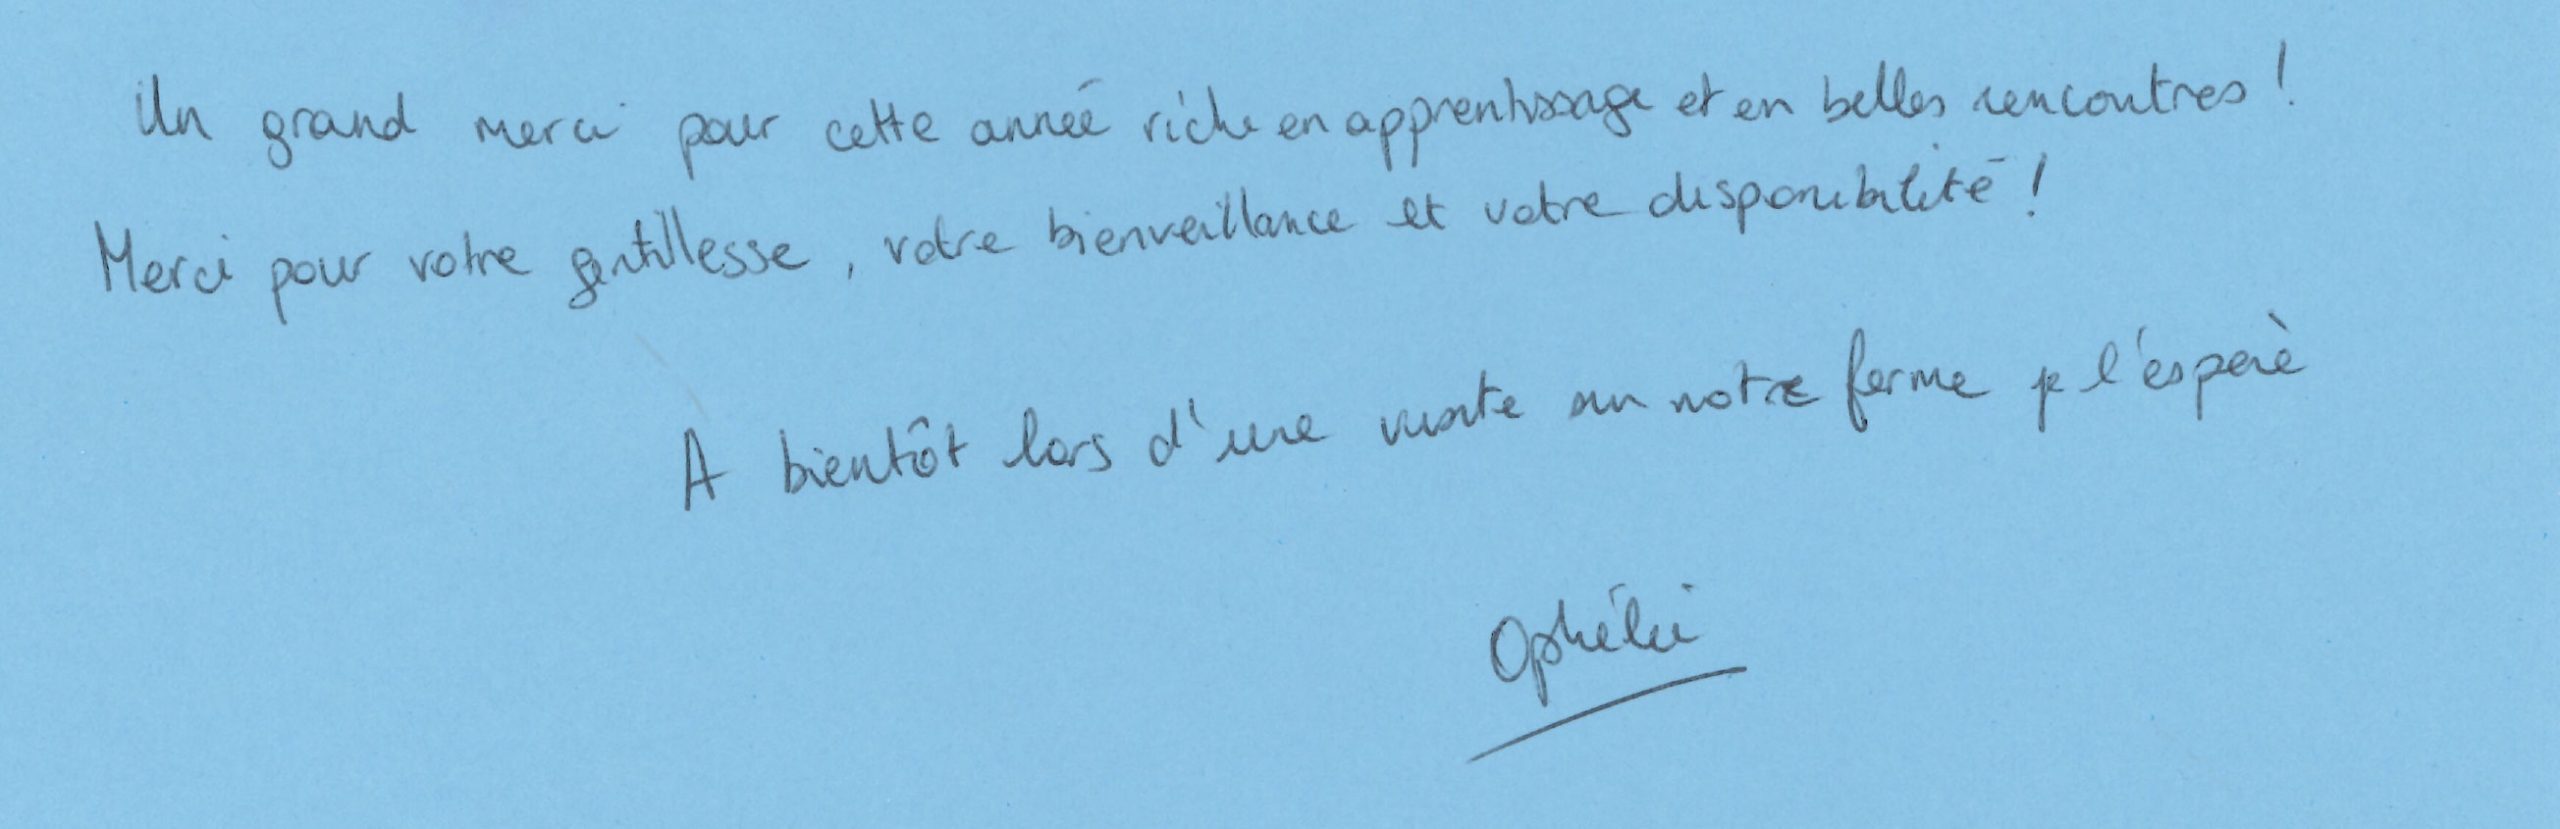 Un grand merci pour cette année riche en apprentissage et en belles rencontres !
Merci pour votre gentillesse, votre bienveillance et votre disponibilité !
A bientôt lors d'une visite sur notre ferme je l'espère
Ophélie